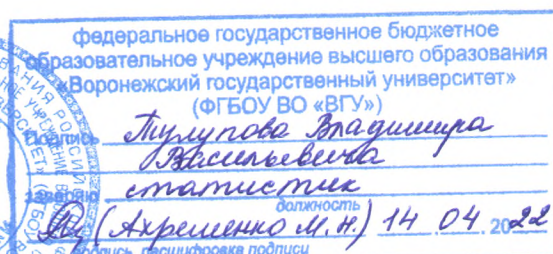 федеральное государственное бюджетное
образовательное учреждение высшего образования
«Воронежский государственный университет»
(ФГБОУ ВО «ВГУ»)
Подпись Тулупова Владимира
Васильевича
заверяю статистик
должность
(Ахременко М.Н.) 14 04. 2022
подпись, расшифровка подписи